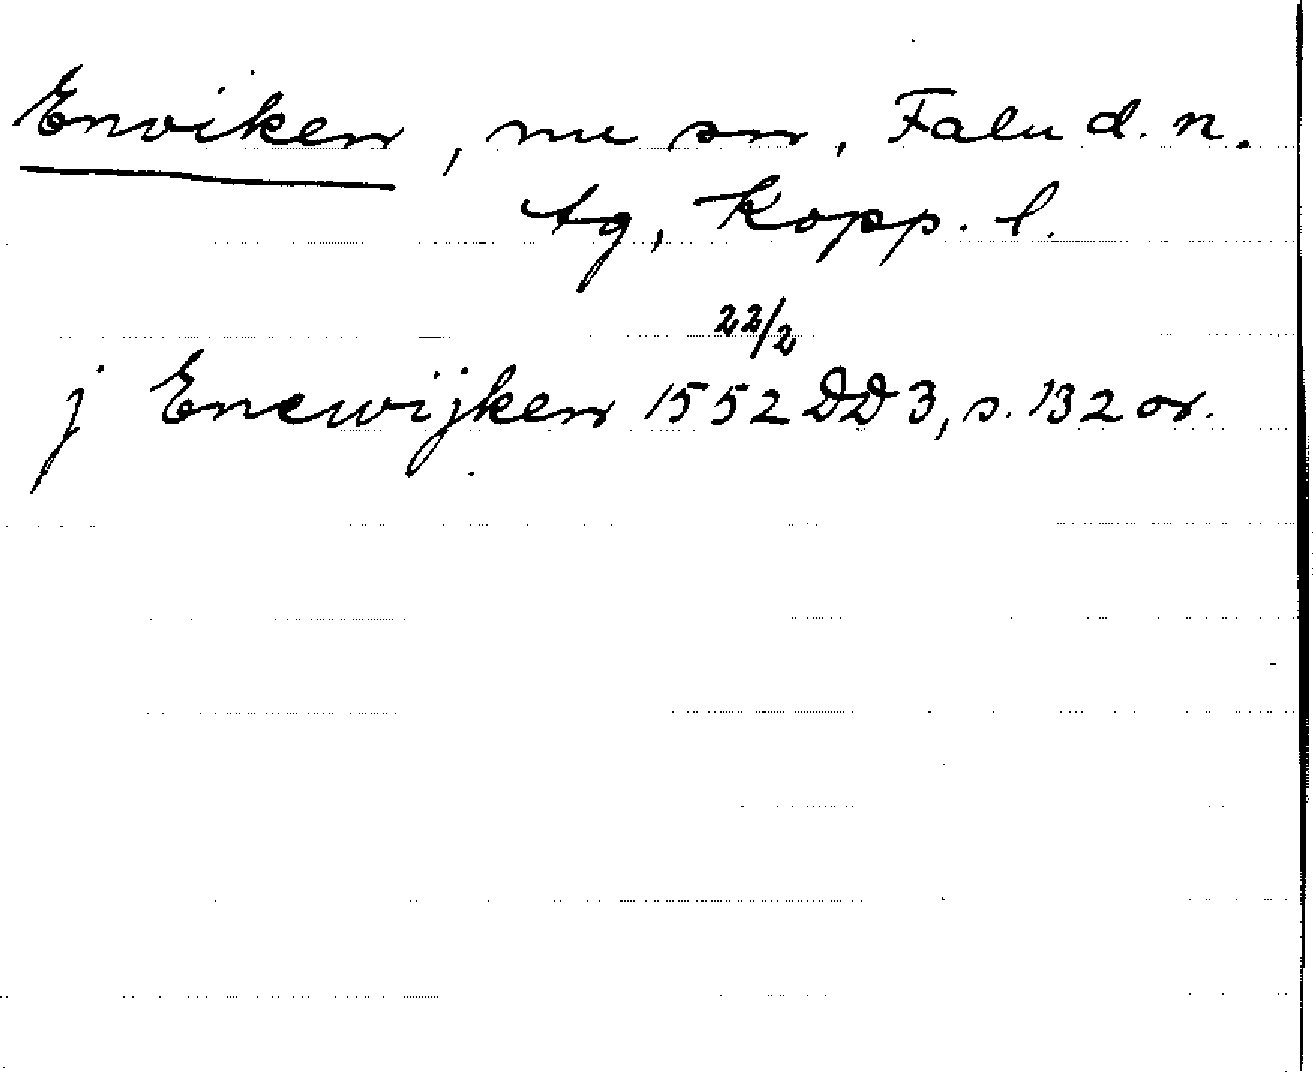 Enviken, nu sn, Falu d. n.
tg, Kopp. l.
22/2
j Enewijken 1552 DD 3, s. 132 or.